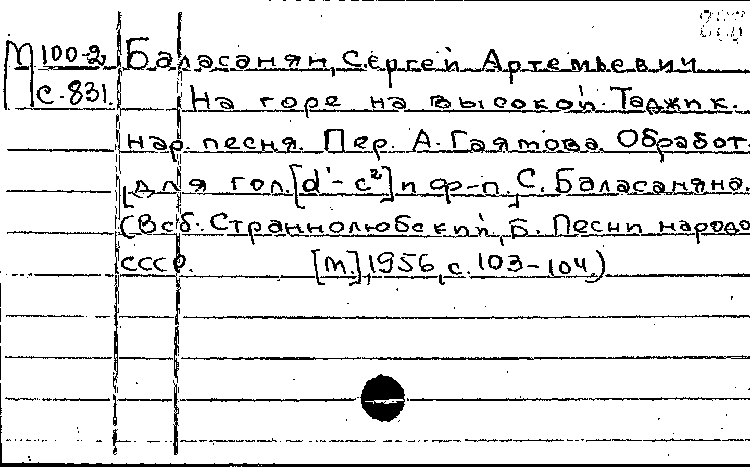 М 100-2 Баласанян, Сергей Артемьевич
с. 831. На горе на высокой. Таджик.
нар. песня. Пер. А. Гаямова. Обработ.
[для гол. [d¹-c²] и ф-п.] С. Баласаняна.
(В сб. Страннолюбский, Б. Песни народо
СССР. [М.], 1956, с. 103-104.)